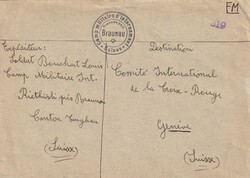 FM
Camp militaire d'internement
Braunau
Suisse
Expéditeur:
Soldat Bouchat Louis
Camp Militaire Int.
Rietholzli près Braunau
Canton Turghau
(Suisse)
Destination
Comité International
de la Croix-Rouge
Genève
(Suisse)